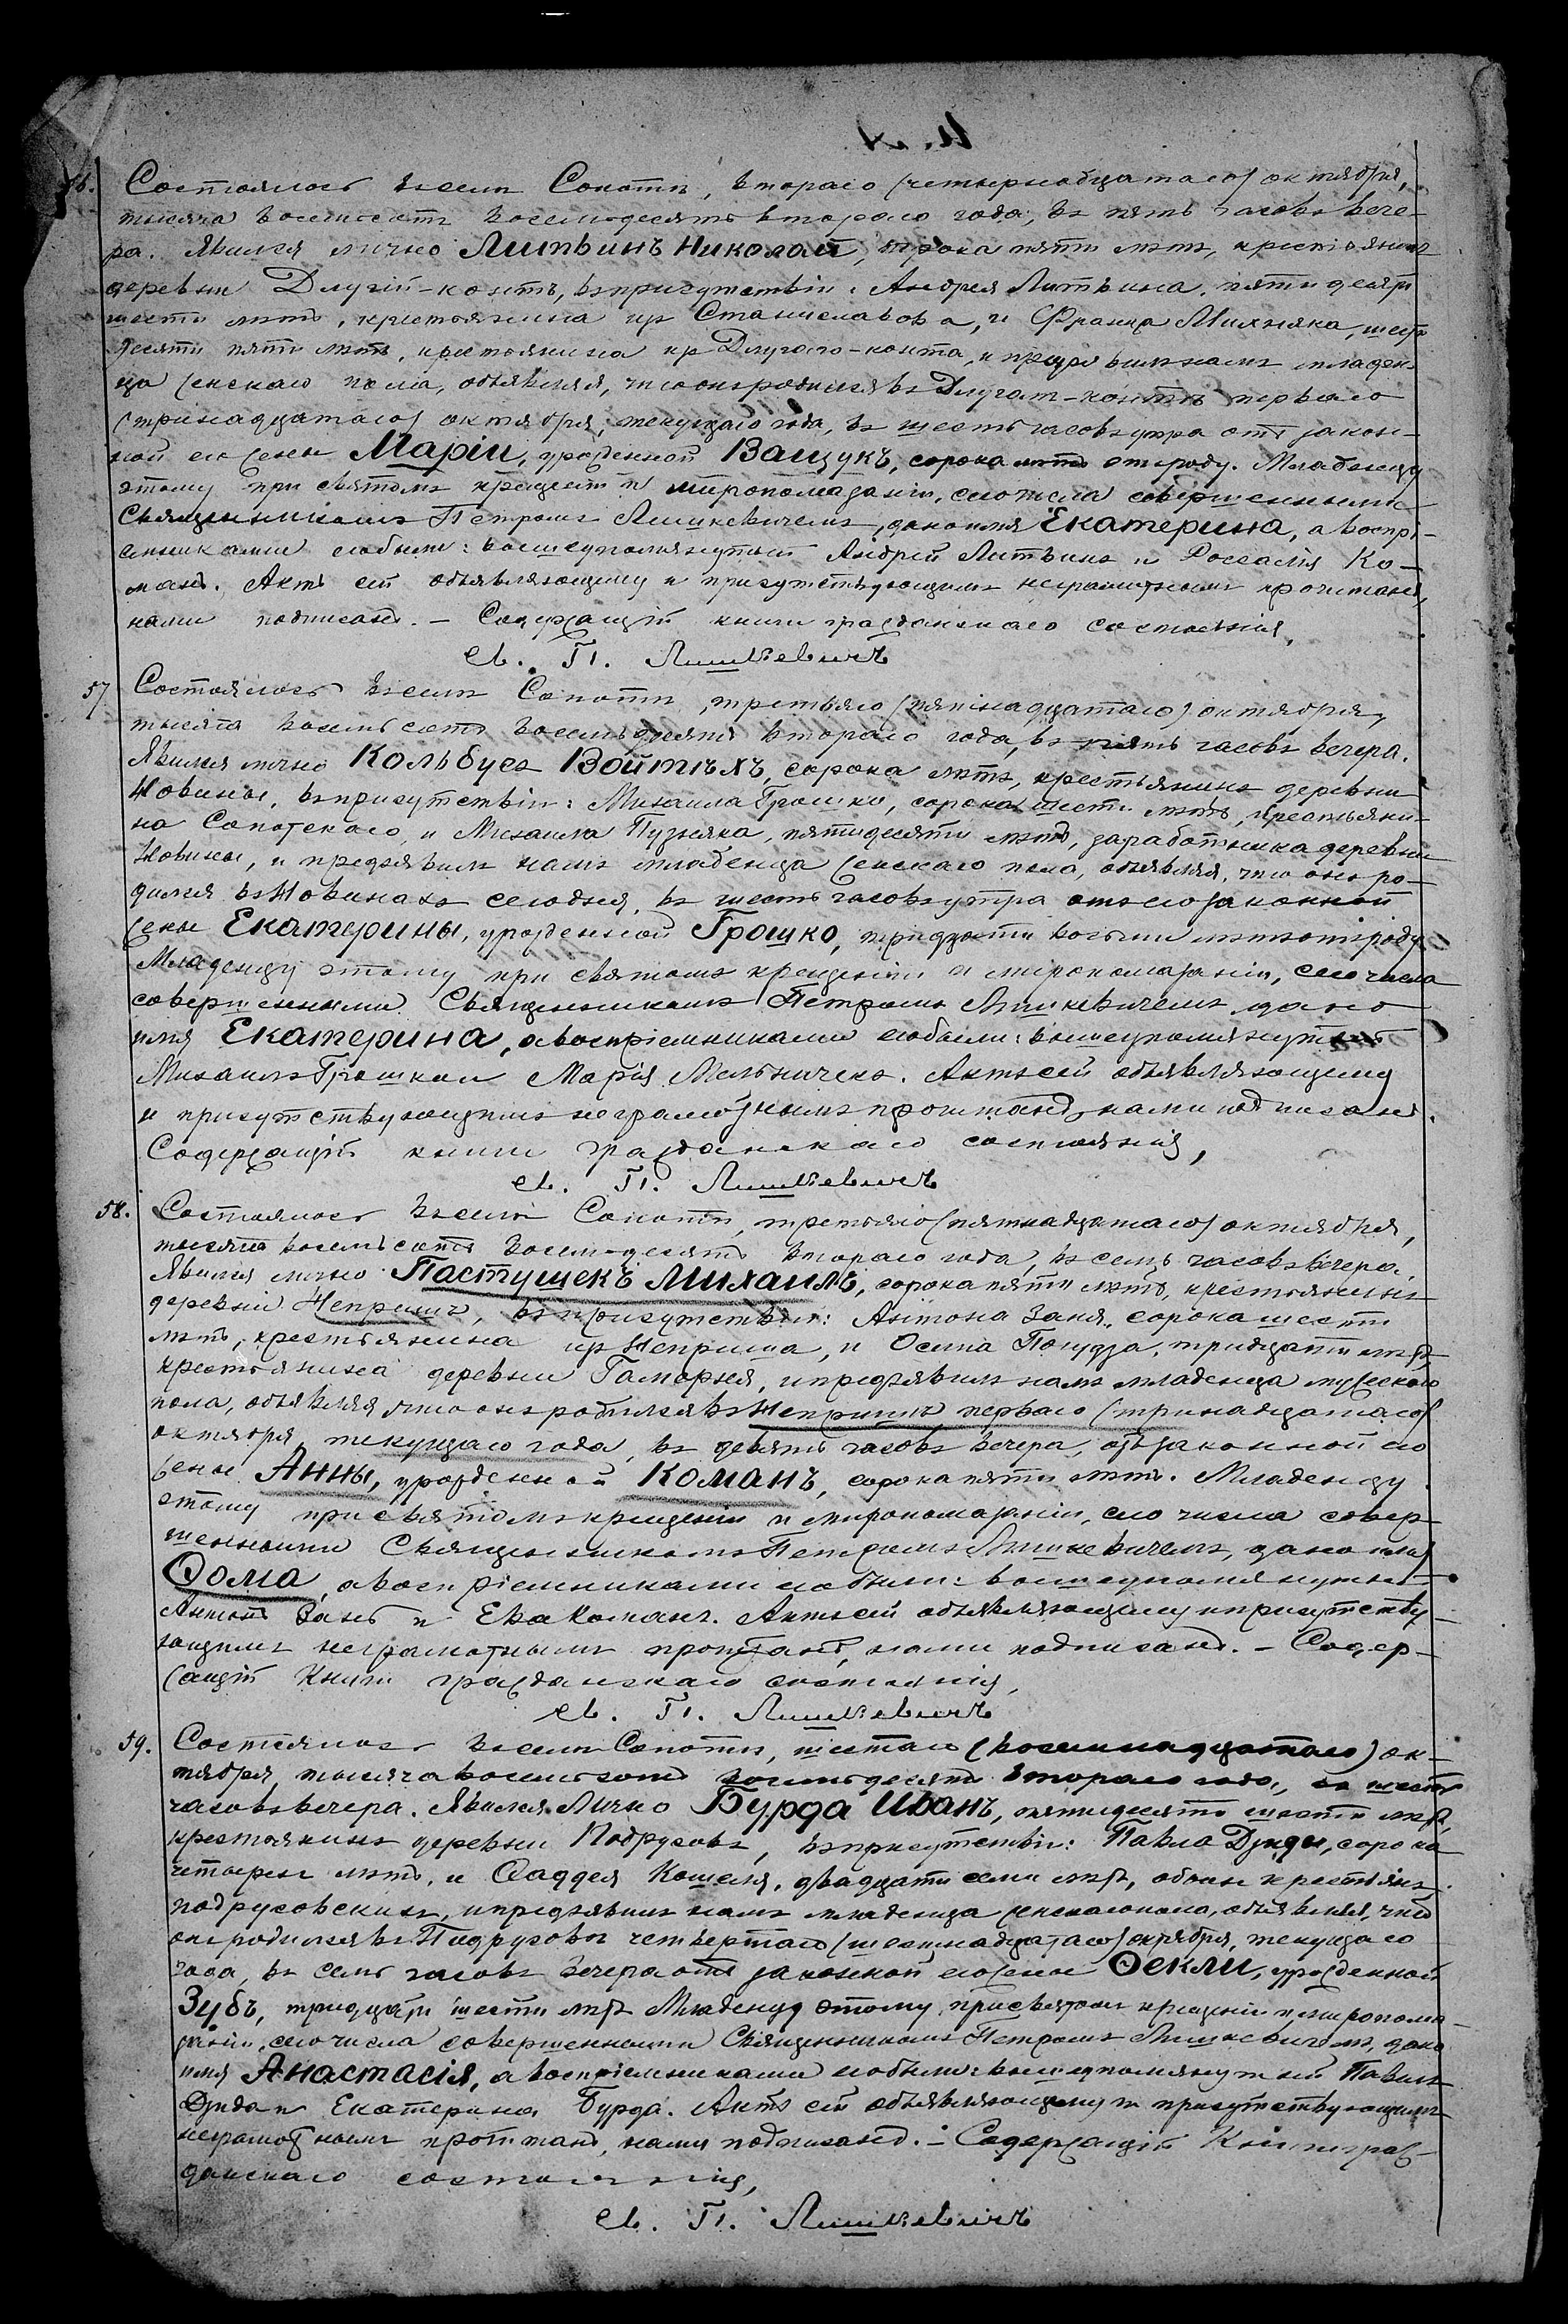 56. Состоялось въ селѣ Сопотѣ, втораго (четырнадцатаго) октября,
тысяча восемьсотъ восемьдесятъ втораго года, въ пять часовъ вече-
ра. Явился лично Литвинъ Николай, сорока пяти лѣтъ, крестьянинъ
деревни Длугій-контъ, въ присутствіи: Андрея Литвина, пятидесяти
шести лѣтъ, крестьянина изъ Станиславова, и Франка Михняка, шесть
десяти пяти лѣтъ, крестьянина изъ Длугаго-конта, и предъявилъ намъ младен-
ца женскаго пола, объявляя, что онъ родился въ Длугат-контѣ перваго
(тринадцатаго) октября, текущаго года, въ шесть часовъ утра отъ закон-
ной его жены Маріи, урожденной Ващукъ, сорока лѣтъ отъ роду. Младенцу
этому при святомъ крещеніи и миропомазаніи, сего числа совершенными
Священникомъ Петромъ Лишкевичемъ, дано имя Екатерина, а воспрі-
емниками его были: вышеупомянутый Андрей Литвинъ и Розалія Ко-
манъ. Актъ сей объявляющему и присутствующимъ неграмотнымъ прочитанъ,
нами подписанъ. - Содержащій книги гражданскаго состоянія,
Св. П. Лишкевичъ
57 Состоялось въ селѣ Сопотѣ, третьяго (пятнадцатаго) октября,
тысяча восемьсотъ восемьдесятъ втораго года, въ пять часовъ вечера.
Явился лично Кольбусъ Войтѣхъ, сорока лѣтъ, крестьянинъ деревни
Новины, въ присутствіи: Михаила Грошко, сорока шести лѣтъ, крестьяни-
на Сопотскаго, и Михаила Пузняка, пятидесяти лѣтъ, заработника деревни
Новины, и предъявилъ намъ младенца женскаго пола, объявляя, что онъ ро-
дился въ Новинахъ сегодня, въ шесть часовъ утра отъ его законной
жены Екатерины, урожденной Грошко, тридцати восьми лѣтъ отъ роду.
Младенцу этому при святомъ крещеніи и миропомазаніи, сего числа
совершенными Священникомъ Петромъ Лишкевичемъ дано
имя Екатерина, а воспріемниками его были: вышеупомянутый
Михаилъ Грошко и Марія Мельничекъ. Актъ сей объявляющему
и присутствующимъ неграмотнымъ прочитанъ, нами подписанъ.
Содержащій книги гражданскаго состоянія,
Св. П. Лишкевичъ
58. Состоялось въ селѣ Сопотѣ, третьяго (пятнадцатаго) октября,
тысяча восемьсотъ восемьдесятъ втораго года, въ семь часовъ вечера.
Явился лично Пастушекъ Михаилъ, сорока пяти лѣтъ, крестьянинъ
деревни Непришъ, въ присутствіи: Антона Заня, сорока шести
лѣтъ, крестьянина изъ Неприша, и Осипа Покудза, тридцати лѣтъ,
крестьянина деревни Гамарня, и предъявилъ намъ младенца мужескаго
пола, объявляя что онъ родился въ Непришѣ перваго (тринадцатаго)
октября текущаго года, въ девять часовъ вечера, отъ законной его
жены Анны, урожденной Команъ, сорока пяти лѣтъ. Младенцу
этому при святомъ крещеніи и миропомазаніи, сего числа совер-
шенными Священникомъ Петромъ Лишкевичемъ, дано имя
Ѳома, а воспріемниками его были: вышеупомянутый
Антонъ Зань и Ева Команъ. Актъ сей объявляющему и присутству-
ющимъ неграмотнымъ прочитанъ, нами подписанъ. - Содер-
жащій книги гражданскаго состоянія,
Св. П. Лишкевичъ
59. Состоялось въ селѣ Сопотѣ, шестаго (восемнадцатаго) ок-
тября тысяча восемьсотъ восемьдесятъ втораго года, въ шесть
часовъ вечера. Явился лично Бурда Иванъ, пятидесяти шести лѣтъ,
крестьянинъ деревни Подрусовъ, въ присутствіи: Павла Дзиды, сорока
четырехъ лѣтъ, и Ѳаддея Кошеля, двадцати семи лѣтъ, обоихъ крестьянъ
подрусовскихъ, и предъявилъ намъ младенца женскаго пола, объявляя, что
онъ родился въ Подрусовѣ четвертаго (шестнадцатаго) октября, текущаго
года, въ семь часовъ вечера отъ законной его жены Ѳекли, урожденной
Зубъ, тридцати шести лѣтъ Младенцу этому, при святомъ крещеніи и миропома-
заніи, сего числа совершенными Священникомъ Петромъ Лишкевичемъ, дано
имя Анастасія, а воспріемниками его были: вышеупомянутый Павелъ
Дзида и Екатерина Бурда. Актъ сей объявляющему и присутствующимъ
неграмотнымъ прочитанъ, нами подписанъ. - Содержащій Книги граж-
данскаго состоянія,
Св. П. Лишкевичъ